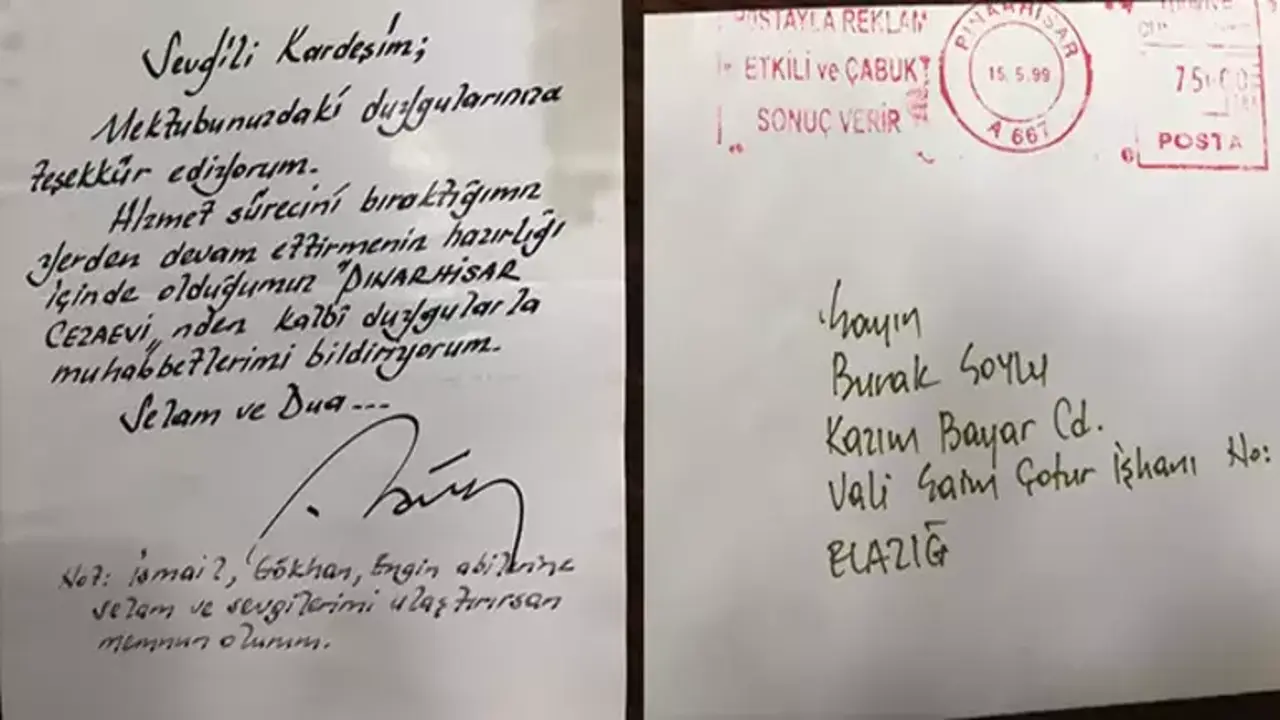 Sevgili Kardeşim;
Mektubunuzdaki duygularınıza
teşekkür ediyorum.
Hizmet sürecini bıraktığımız
yerden devam ettirmenin hazırlığı
içinde olduğumuz "PINARHİSAR
CEZAEVİ"nden kalbî duygularla
muhabbetlerimi bildiriyorum.
Selam ve Dua...
Not: İsmail, Gökhan, Engin abilerine
selam ve sevgilerimi ulaştırırsan
memnun olurum.
POSTAYLA REKLAM
ETKİLİ ve ÇABUK
SONUÇ VERİR
PINARHİSAR
15.5.99
A 667
POSTA
Sayın
Burak Soylu
Kazım Bayar Cd.
Vali Saim Çotur İşhanı No:
ELAZIĞ